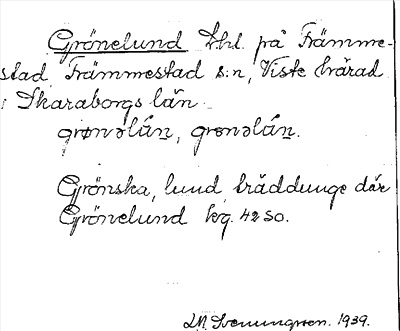 Grönelund Lhl. på Främme-
stad, Främmestad s:n, Viste härad
i Skaraborgs län.
grønəlún, grønəlún.
Grönska, lund, träddunge där
Grönelund kg. 42 SO.
1939.